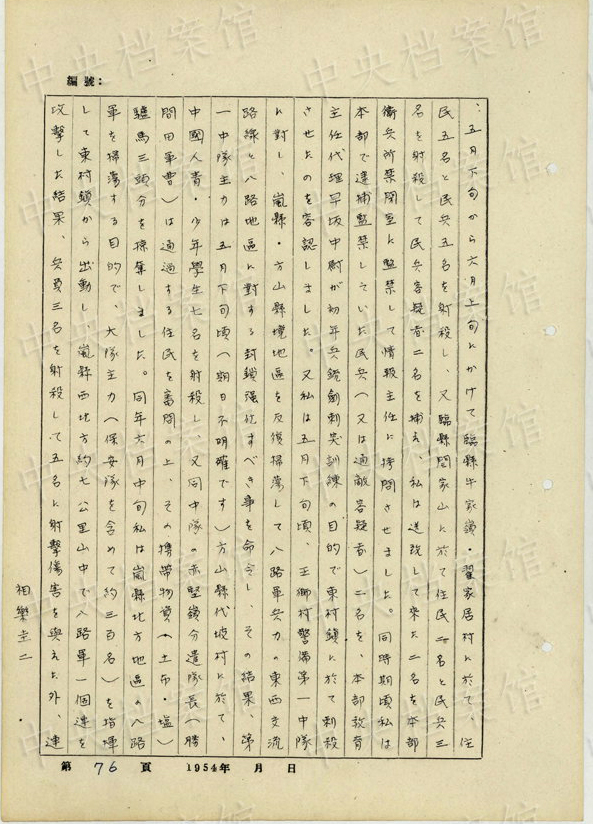 編號：
、五月下旬から六月上旬にかけて臨縣牛家鎮・翟家居村に於て、住
民五名と民兵五名を射殺し、又臨縣閻家山に於て住民二名と民兵三
名を射殺して民兵容疑者二名を捕え、私は送致して来た二名を本部
衛兵所禁閉室に監禁して情報主任に拷問させました。同時期頃私は
本部で逮捕監禁していた民兵（又は通敵容疑者）二名を、本部教育
主任代理早坂中尉が初年兵銃劍刺突訓練の目的で東村鎮に於て刺殺
させたのを容認しました。又私は五月下旬頃、王獅村警備第一中隊
に対し、嵐縣・方山縣境地區を反復掃蕩して八路軍兵力の東西交流
路線と八路地區に対する封鎖強化すべき事を命令し、その結果、第
一中隊主力は五月下旬頃（期日不明確です）方山縣代坡村に於て、
中國人青・少年學生七名を射殺し、又同中隊の赤堅嶺分遣隊長（勝
間田軍曹）は通過する住民を審問の上、その携帯物資（土布・塩）
驢馬三頭分を掠奪しました。同年六月中旬私は嵐縣北方地區の八路
軍を掃蕩する目的で、大隊主力（保安隊を含めて約三百名）を指揮
して東村鎮から出動し、嵐縣西北方約七公里山中で八路軍一個連を
攻撃した結果、兵員三名を射殺して五名に射撃傷害を與えた外、連
相樂圭二
第 76 頁 1954年 月 日
中央档案馆